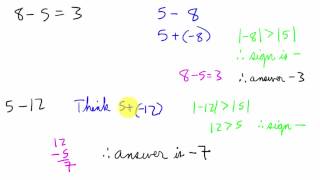 8 - 5 = 3
5 - 8
5 + (-8)
|-8| > |5|
∴ sign is -
8 - 5 = 3 ∴ answer -3
5 - 12 Think 5 + (-12)
|-12| > |5|
12 > 5 ∴ sign -
12
- 5
7
∴ answer is -7